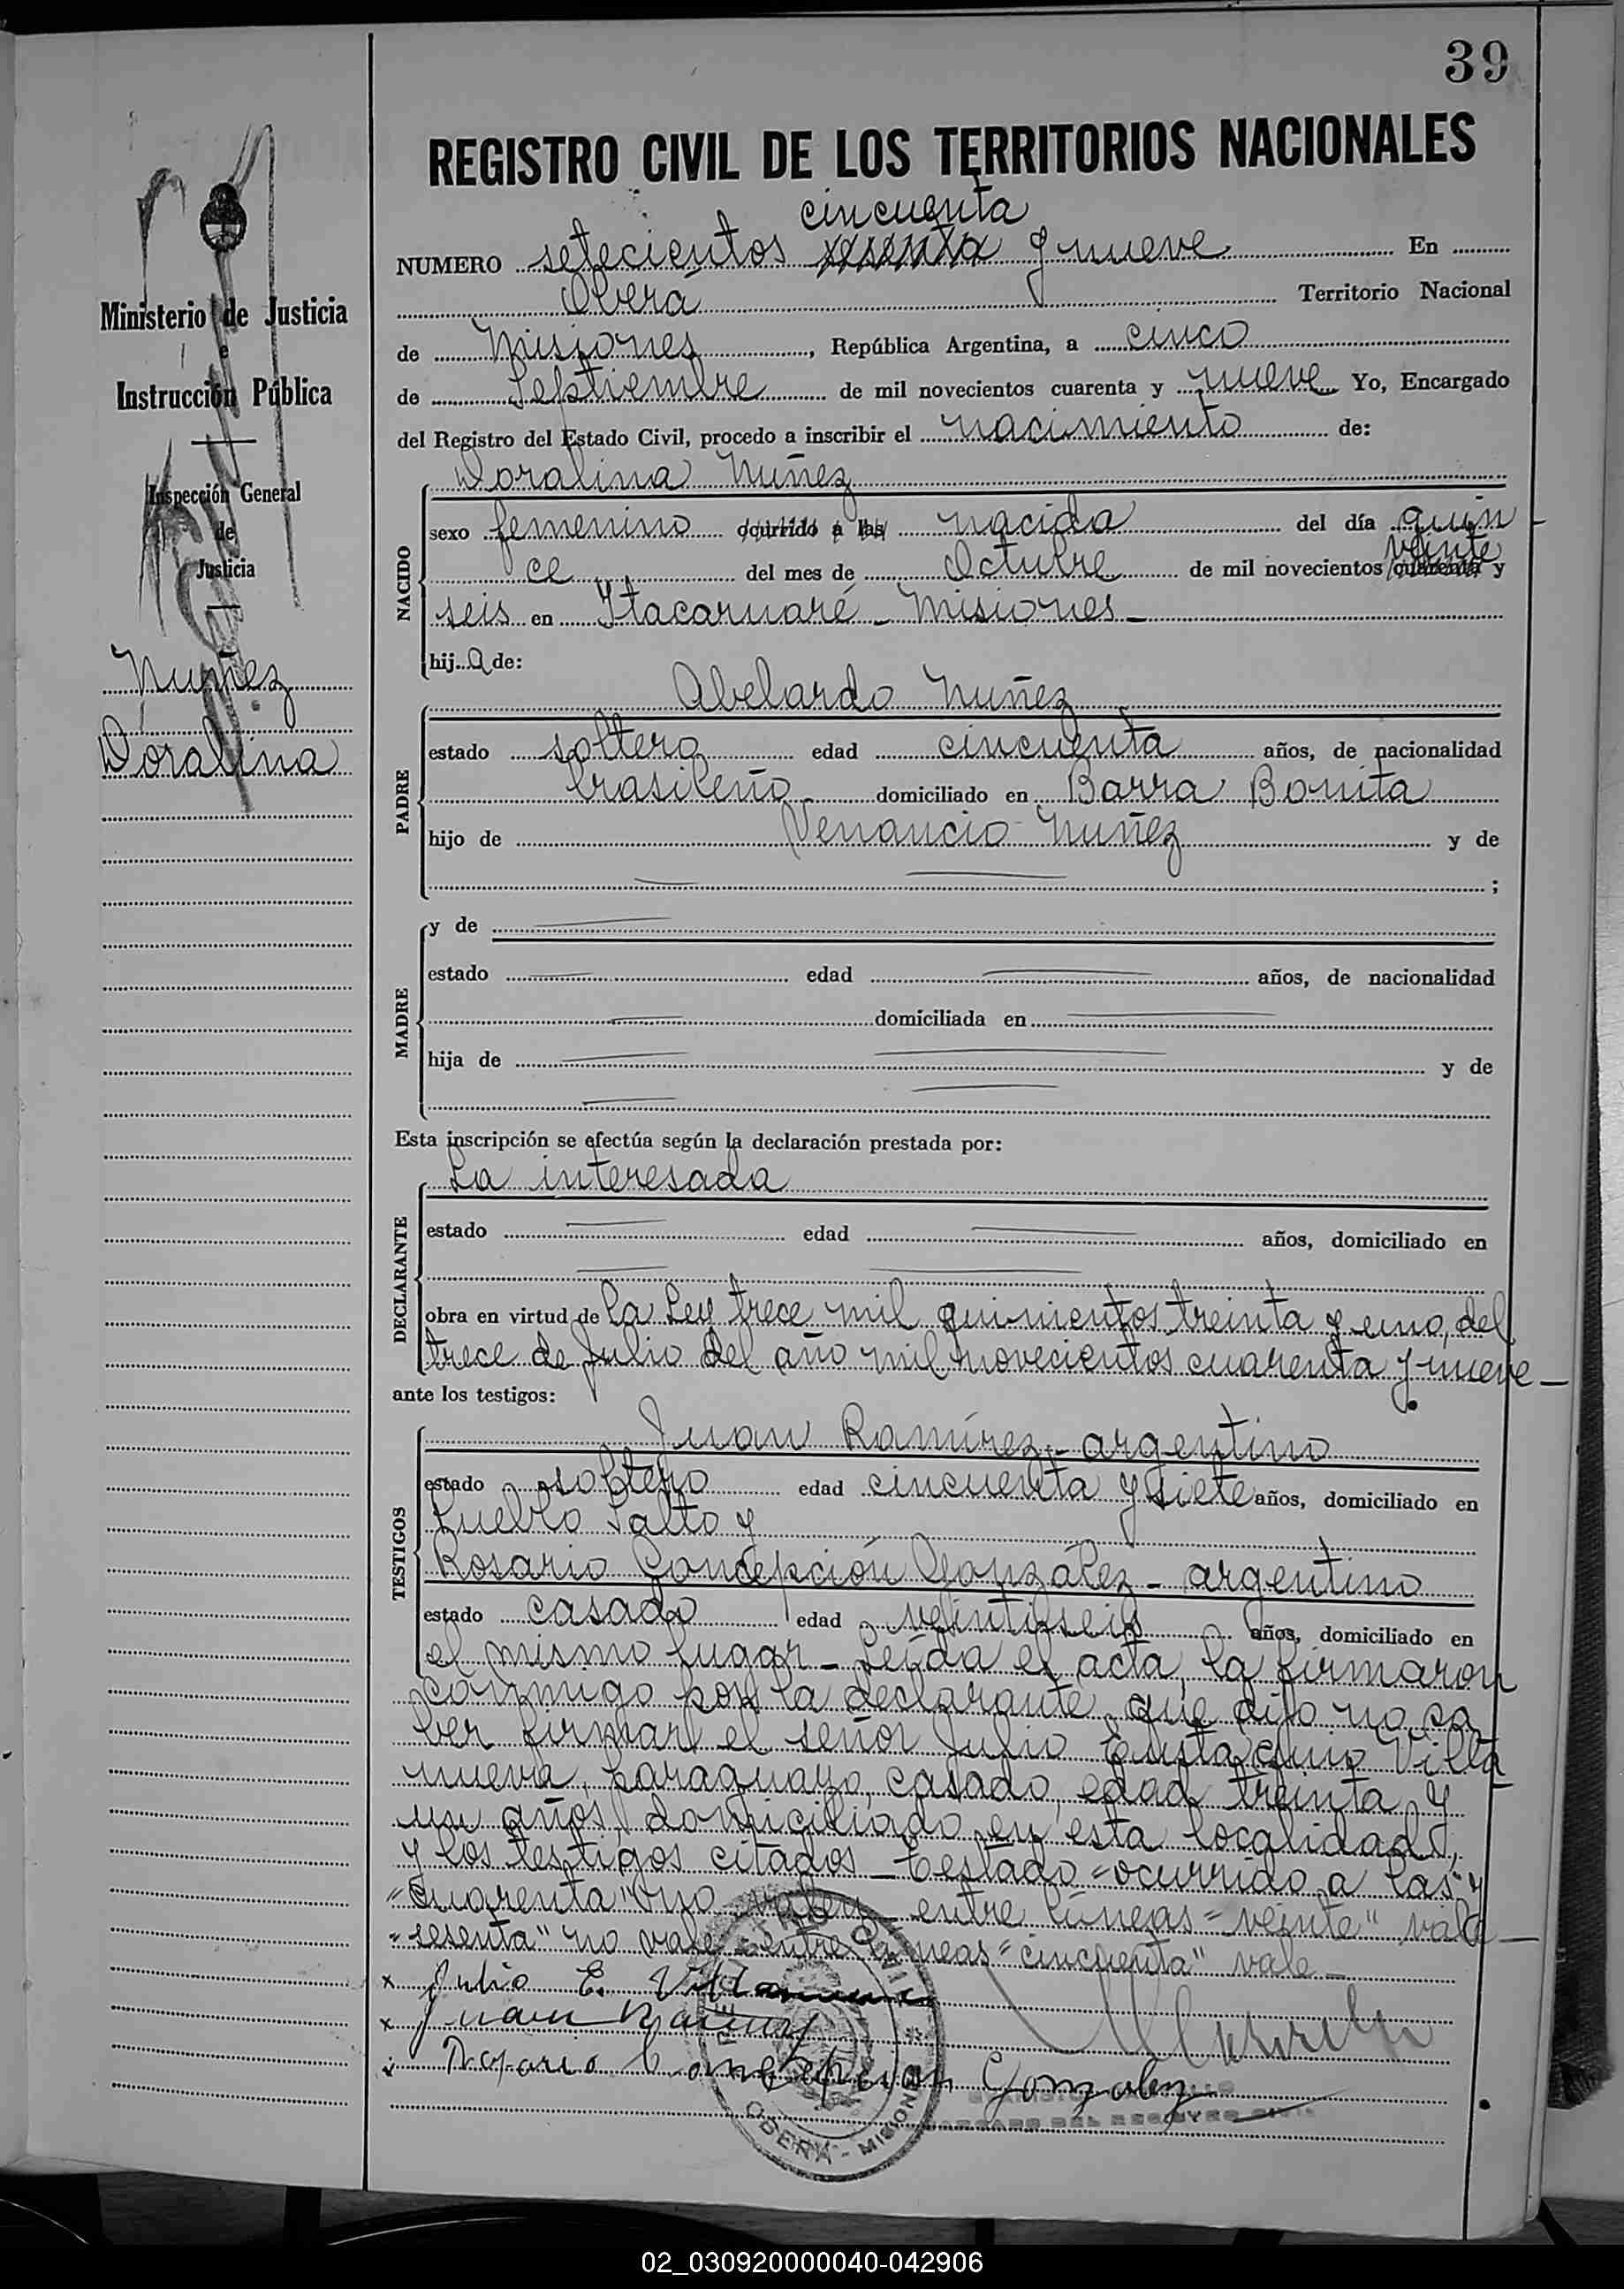 39
REGISTRO CIVIL DE LOS TERRITORIOS NACIONALES
cincuenta
NUMERO setecientos sesenta y nueve En
Oberá Territorio Nacional
de Misiones, República Argentina, a cinco
de Septiembre de mil novecientos cuarenta y nueve Yo, Encargado
del Registro del Estado Civil, procedo a inscribir el nacimiento de:
Ministerio de Justicia
e
Instrucción Pública
Inspección General
de
Justicia
Nuñez
Doralina
NACIDO
Doralina Nuñez
sexo femenino ocurrido a las nacida del día quin
veinte
ce del mes de Octubre de mil novecientos cuarenta y
seis en Itacaruaré - Misiones -
hija de:
PADRE
Abelardo Nuñez
estado soltero edad cincuenta años, de nacionalidad
brasileño domiciliado en Barra Bonita
hijo de Venancio Nuñez y de
;
MADRE
y de
estado edad años, de nacionalidad
domiciliada en
hija de y de
Esta inscripción se efectúa según la declaración prestada por:
DECLARANTE
La interesada
estado edad años, domiciliado en
obra en virtud de la Ley trece mil quinientos treinta y uno, del
trece de Julio del año mil novecientos cuarenta y nueve -
ante los testigos:
TESTIGOS
Juan Ramírez - argentino
estado soltero edad cincuenta y siete años, domiciliado en
Pueblo Salto y
Rosario Concepción González - argentino
estado casado edad veintiseis años, domiciliado en
el mismo lugar - Leída el acta, la firmaron
conmigo por la declarante que dijo no sa
ber firmar el señor Julio Villa
nueva, paraguayo, casado, edad treinta y
un años, domiciliado en esta localidad,
y los testigos citados - Testado = ocurrido a las" y
"cuarenta" no valen entre líneas = veinte" vale -
"sesenta" no vale - entre líneas = cincuenta" vale -
x Julio E. Villanueva
x Juan Ramirez
x Rosario Concepcion Gonzalez
OBERÁ - MISIONES
ENCARGADO DEL REGISTRO CIVIL
02_030920000040-042906